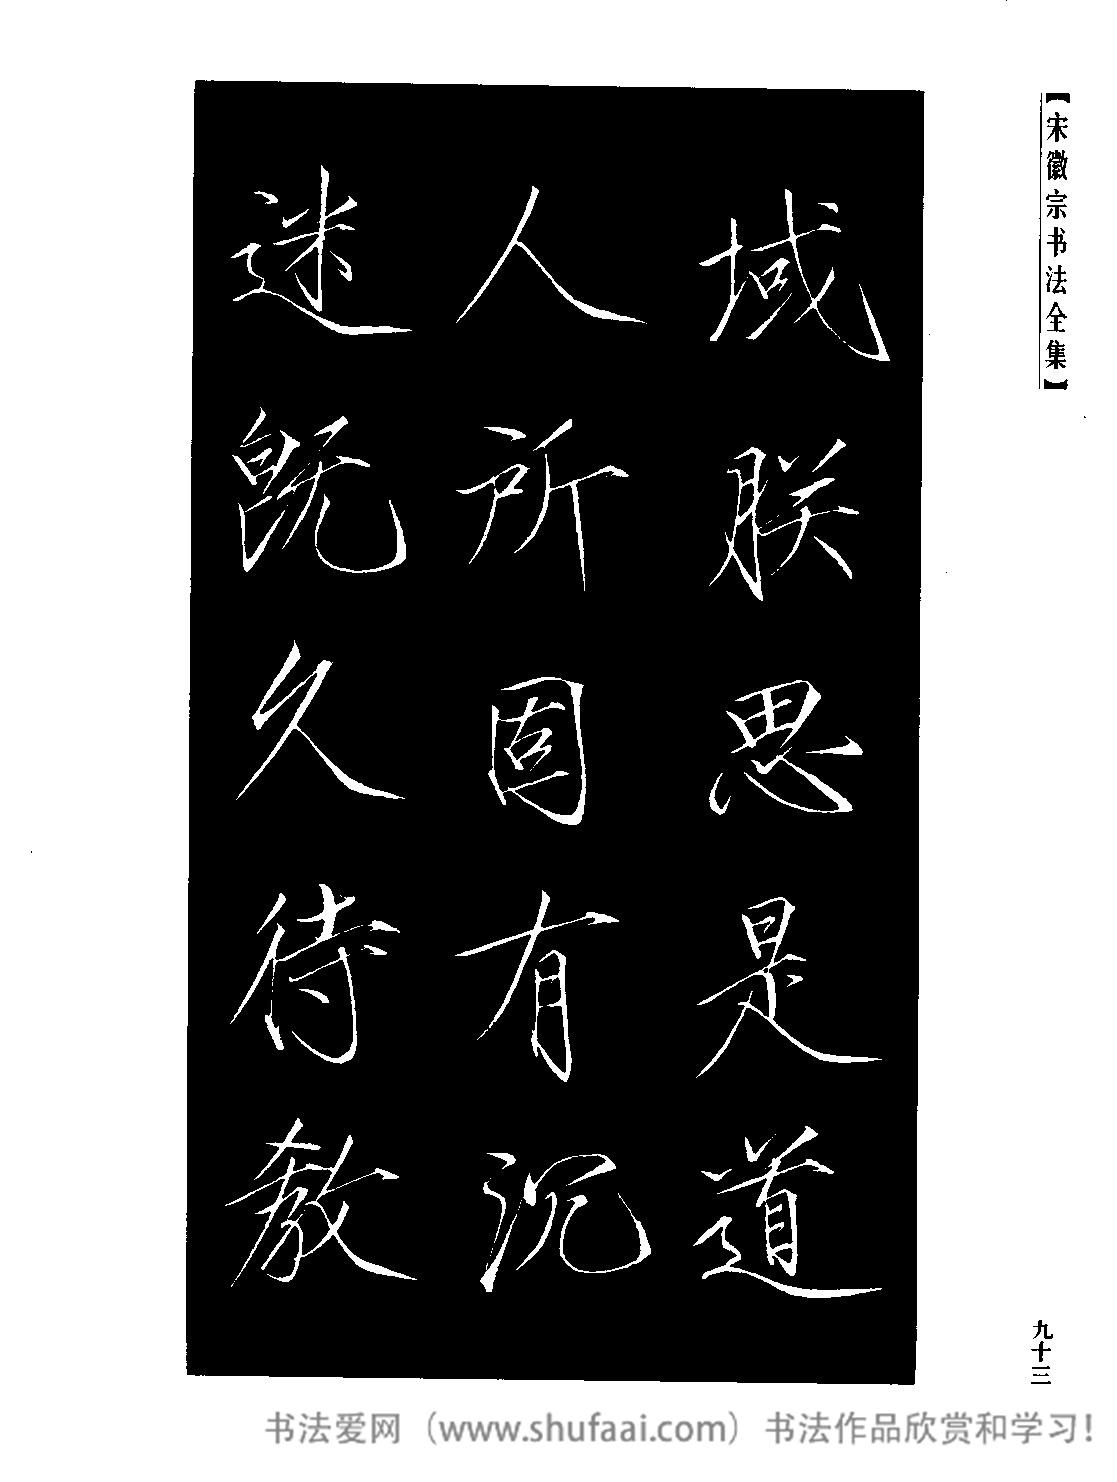 【宋徽宗书法全集】
域朕思是道
人所固有沉
迷既久待教
九十三
书法爱网（www.shufaai.com）书法作品欣赏和学习！